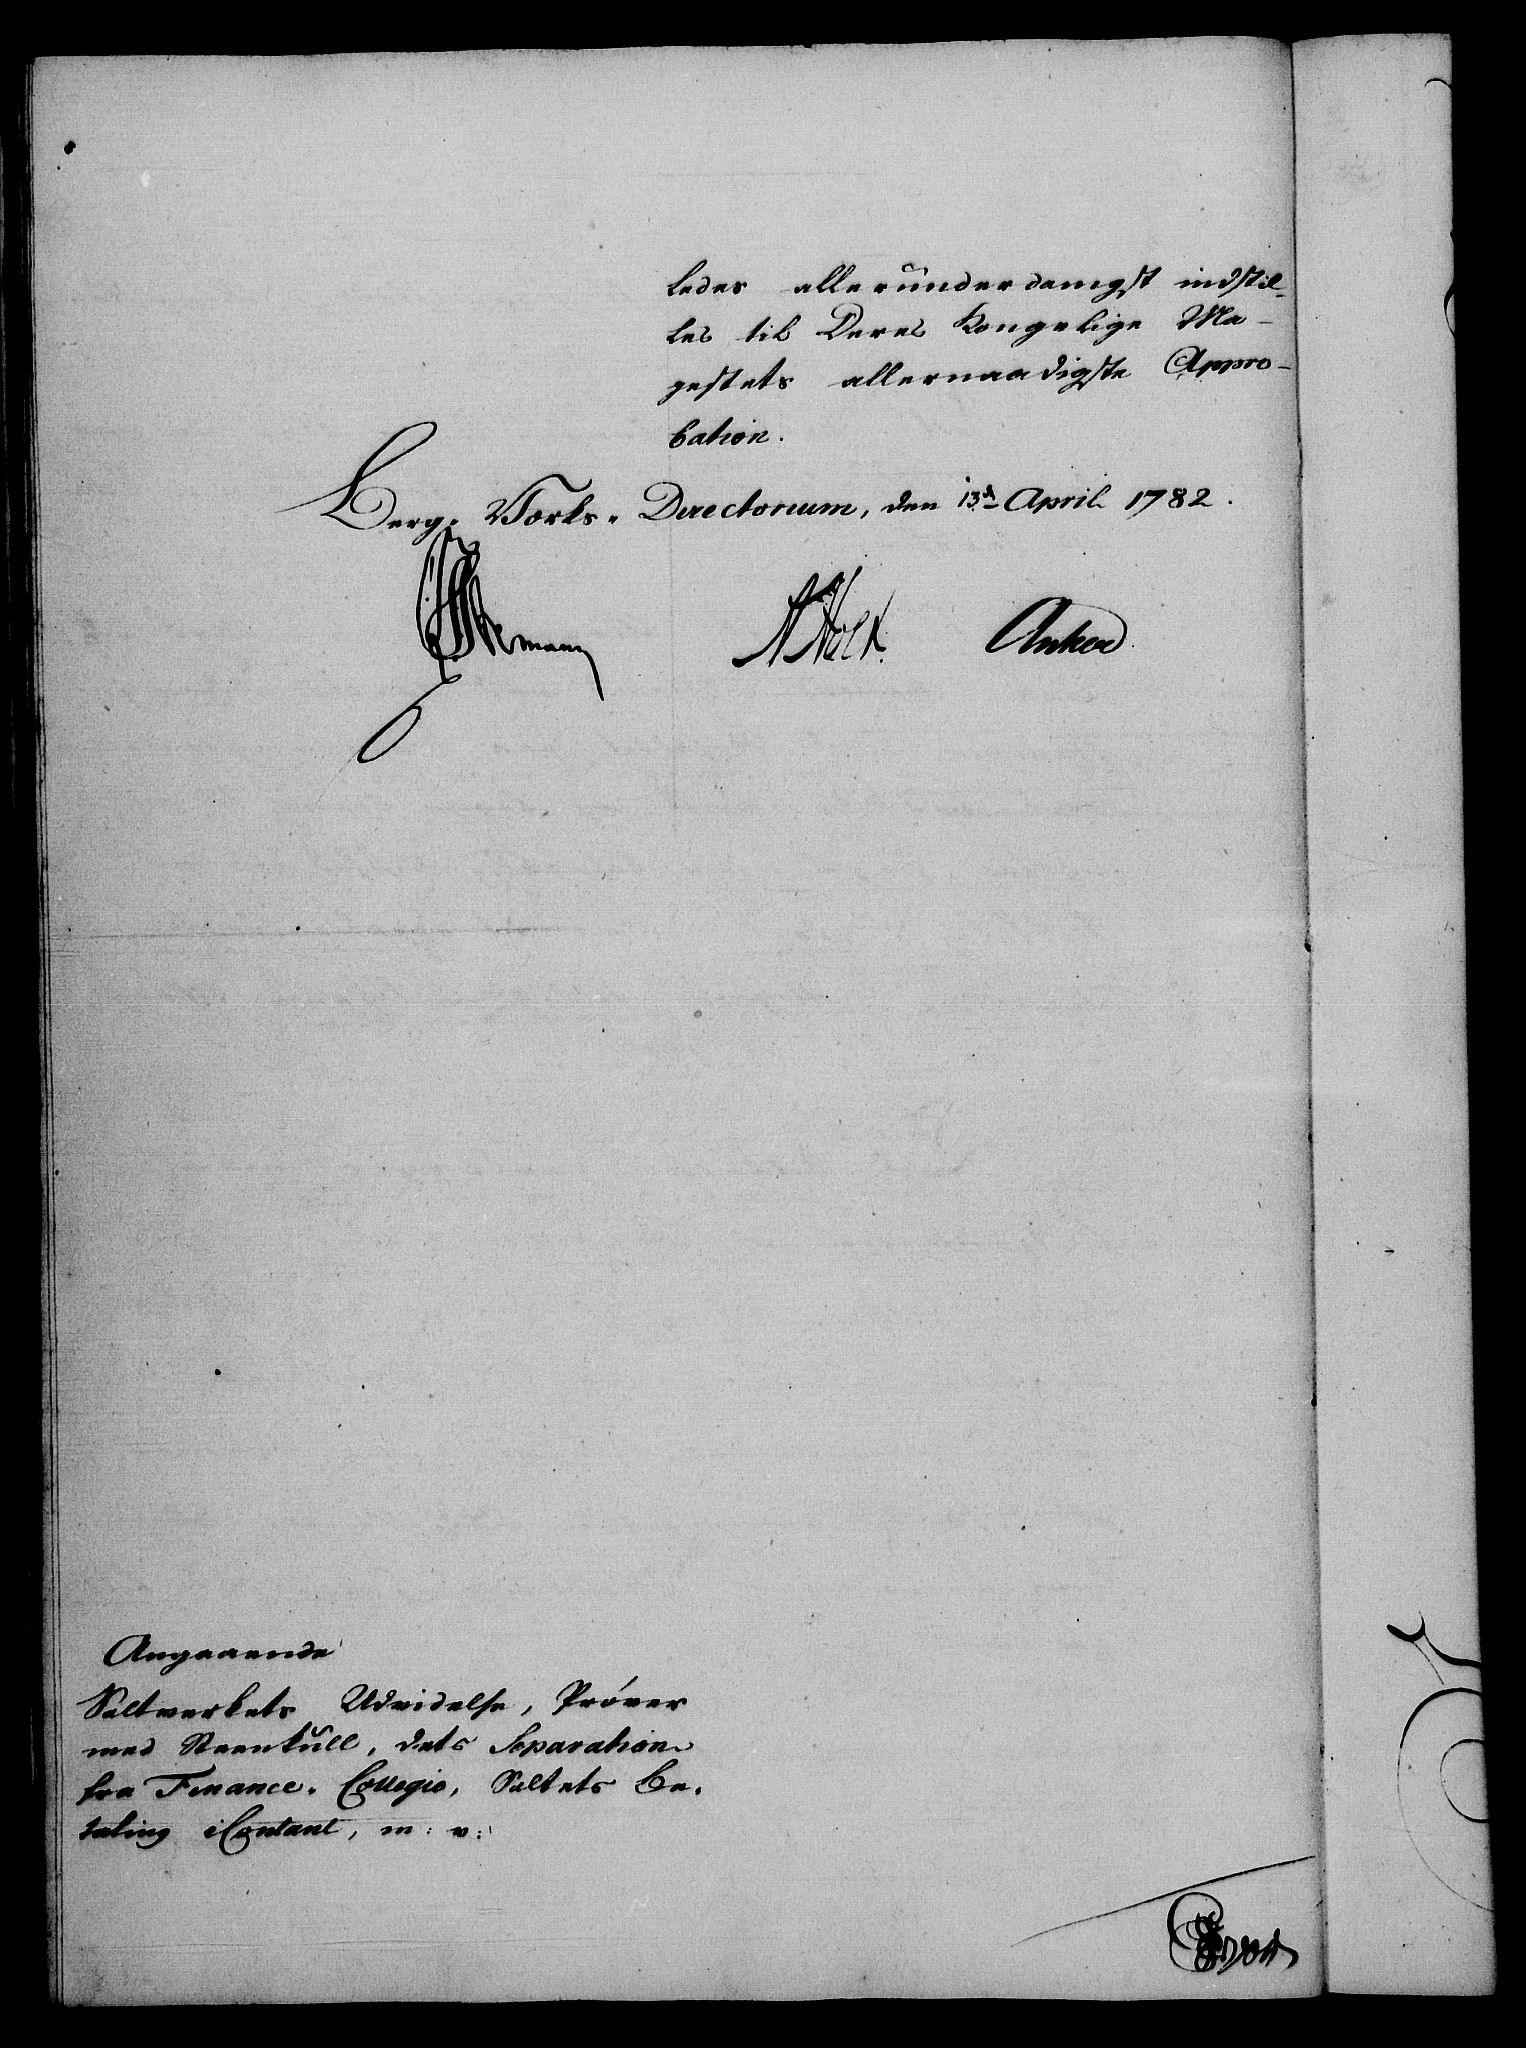 ledes alleründerdanigst indstil-
les til Deres Kongelige Ma-
gestets allernaadigste Appro-
bation.
Berg-Værks-Directorium, den 13d April 1782.
N Holk. Anker
Angaaende
Saltverkets Udvidelse, Prøver
med Steenkŭll, dets Separation
fra Finance-Collegio, Saltets Be-
taling i Contant, m: v: